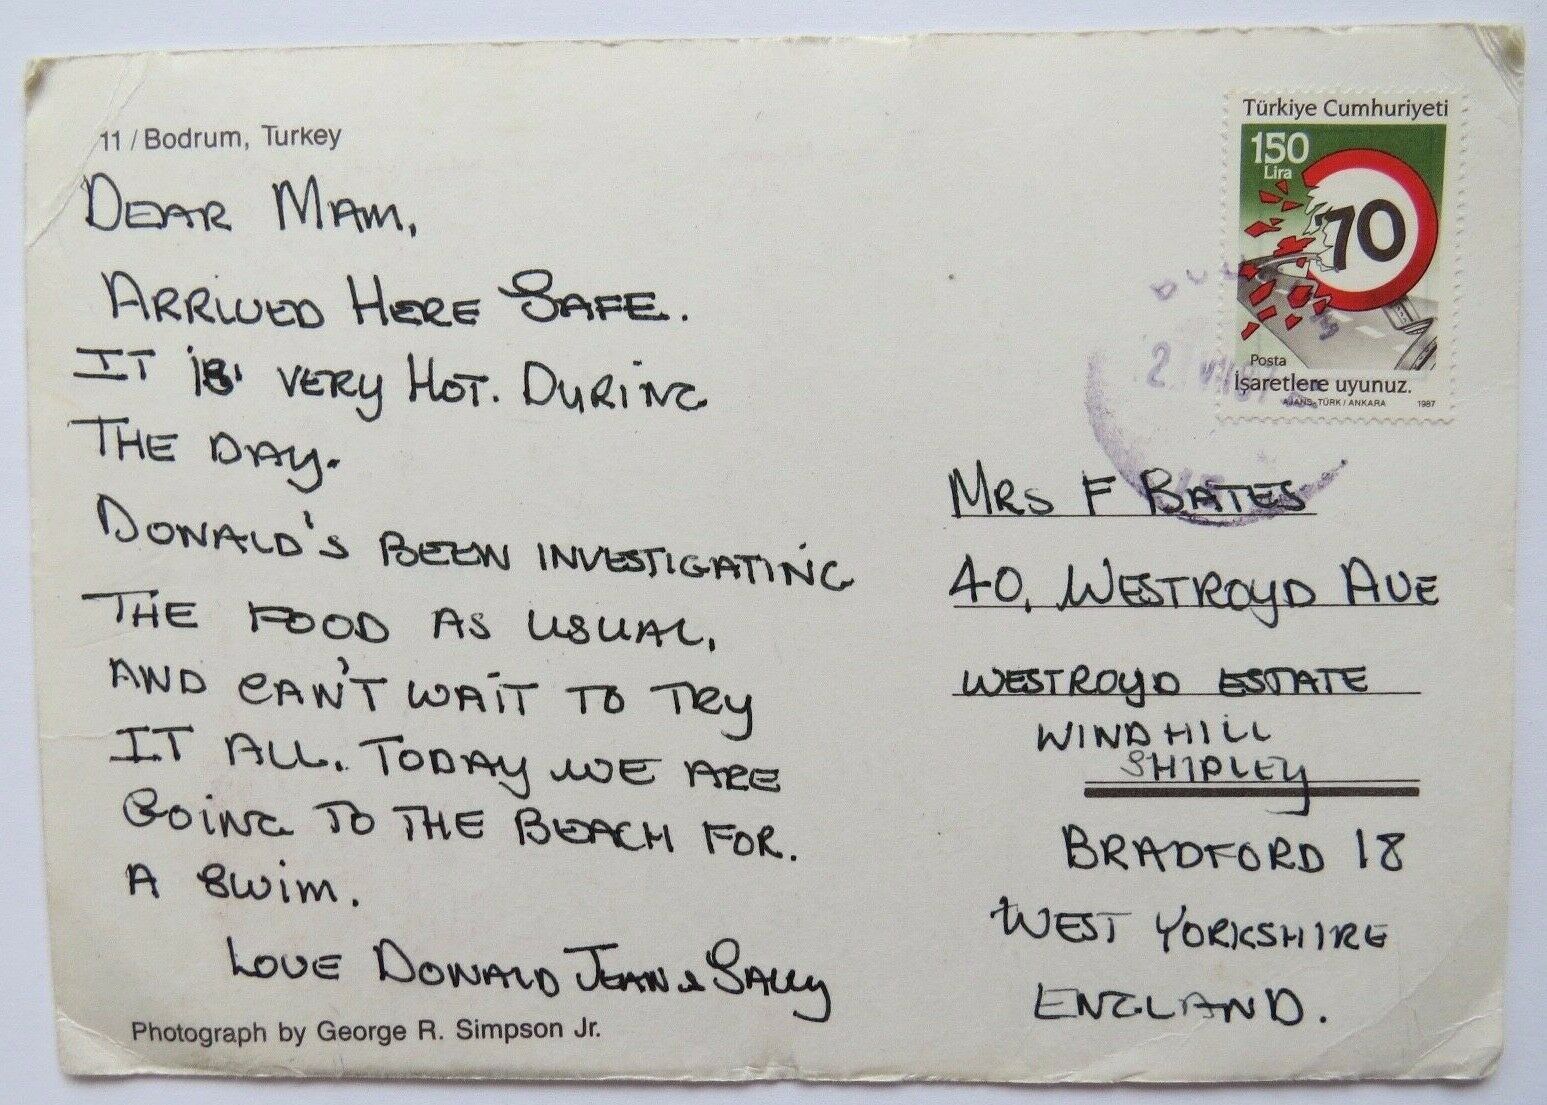 11 / Bodrum, Turkey
DEAR MAM,
ARRIVED HERE SAFE.
IT IS VERY HOT. DURING
THE DAY.
DONALD'S BEEN INVESTIGATING
THE FOOD AS USUAL,
AND CAN'T WAIT TO TRY
IT ALL. TODAY WE ARE
GOING TO THE BEACH FOR.
A SWIM.
LOVE DONALD JEAN & SALLY
Photograph by George R. Simpson Jr.
Türkiye Cumhuriyeti
150
Lira
70
Posta
İşaretlere uyunuz.
AJANS-TÜRK / ANKARA 1987
MRS F BATES
40, WESTROYD AVE
WESTROYD ESTATE
WINDHILL
SHIPLEY
BRADFORD 18
WEST YORKSHIRE
ENGLAND.